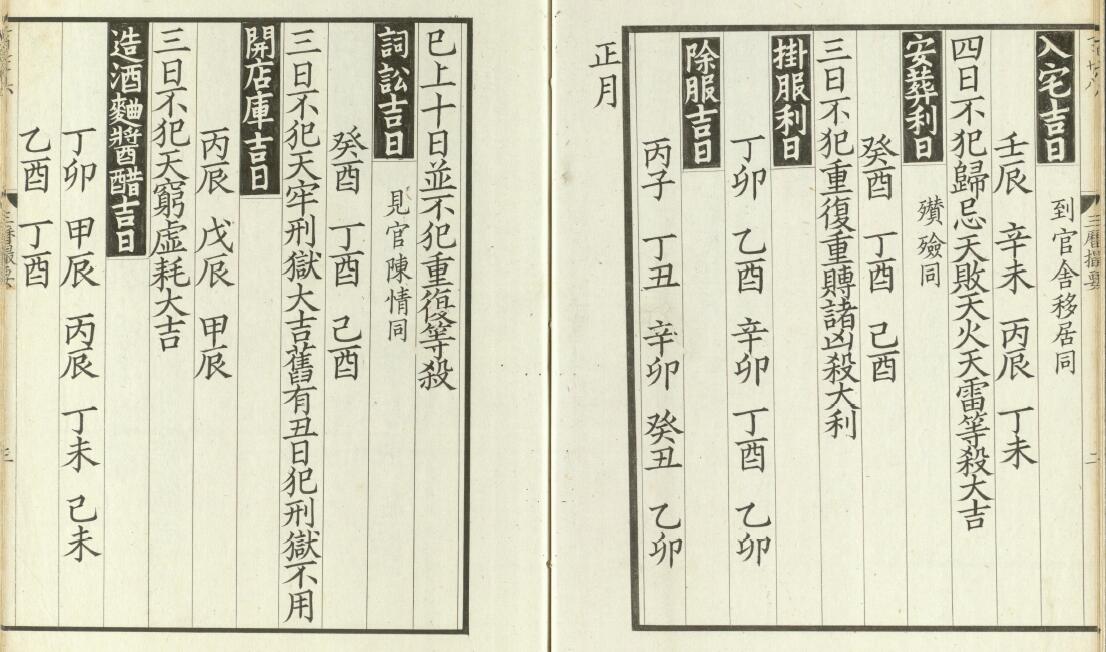 三曆撮要
二
入宅吉日 到官舍移居同
壬辰 辛未 丙辰 丁未
四日不犯歸忌天敗天火天雷等殺大吉
安葬利日 殯殮同
癸酉 丁酉 己酉
三日不犯重復重賻諸凶殺大利
掛服利日
丁卯 乙酉 辛卯 丁酉 乙卯
除服吉日
丙子 丁丑 辛卯 癸丑 乙卯
正月
已上十日並不犯重復等殺
詞訟吉日 見官陳情同
癸酉 丁酉 己酉
三日不犯天牢刑獄大吉舊有丑日犯刑獄不用
開店庫吉日
丙辰 戊辰 甲辰
三日不犯天窮虛耗大吉
造酒麯醬醋吉日
丁卯 甲辰 丙辰 丁未 己未
乙酉 丁酉
三曆撮要
三